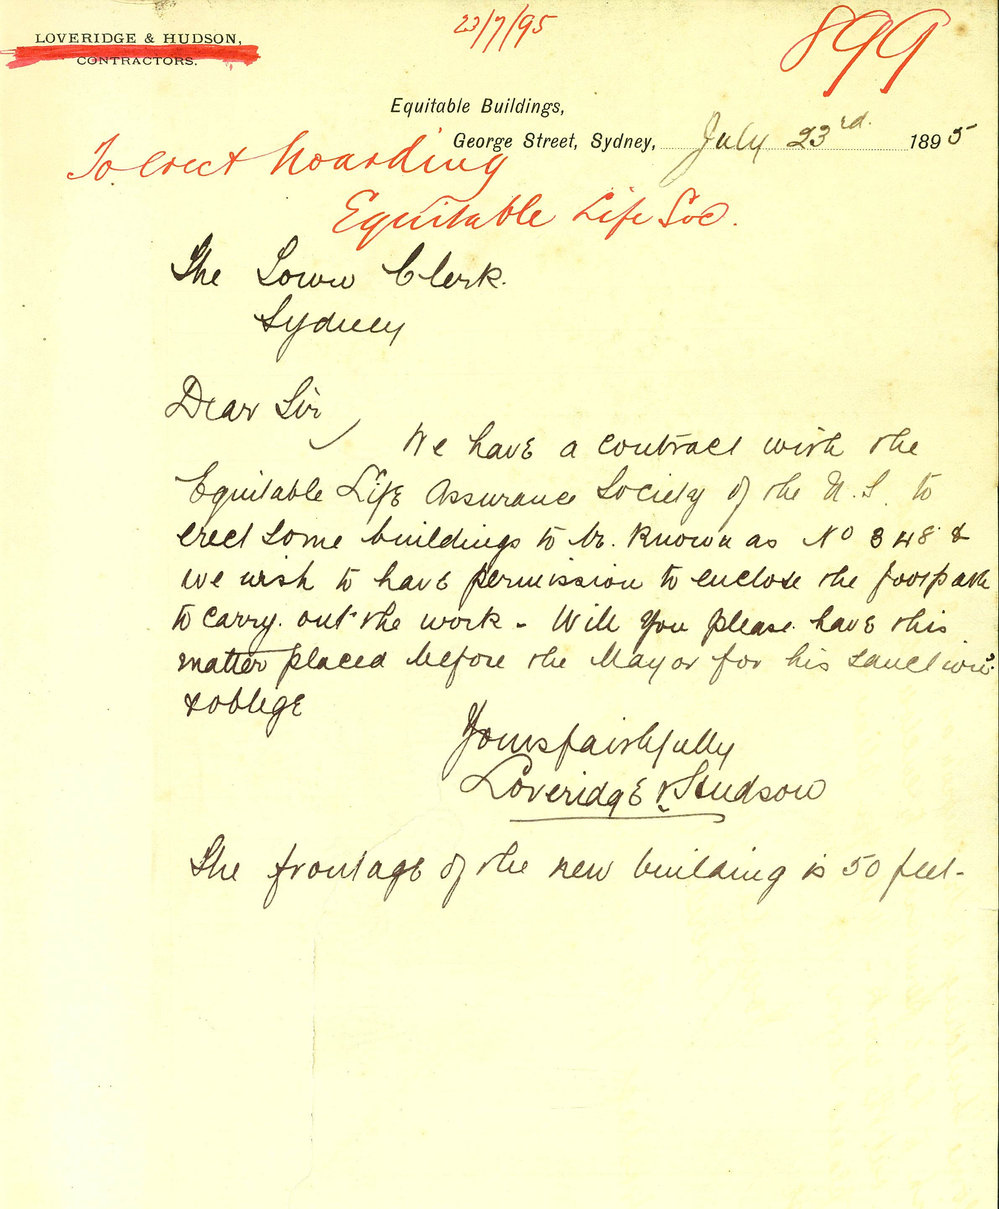 23/7/95
899
LOVERIDGE & HUDSON,
CONTRACTORS.
Equitable Buildings,
George Street, Sydney, July 23rd. 1895
To erect hoarding
Equitable Life Soc.
The Town Clerk.
Sydney
Dear Sir
We have a contract with the
Equitable Life Assurance Society of the U.S. to
erect some buildings to be. known as No 348 &
we wish to have permission to enclose the footpath
to carry. out the work - Will you please. have this
matter placed before the Mayor for his sanction
& oblige
Yours faithfully
Loveridge & Hudson
The frontage of the new building is 50 feet-